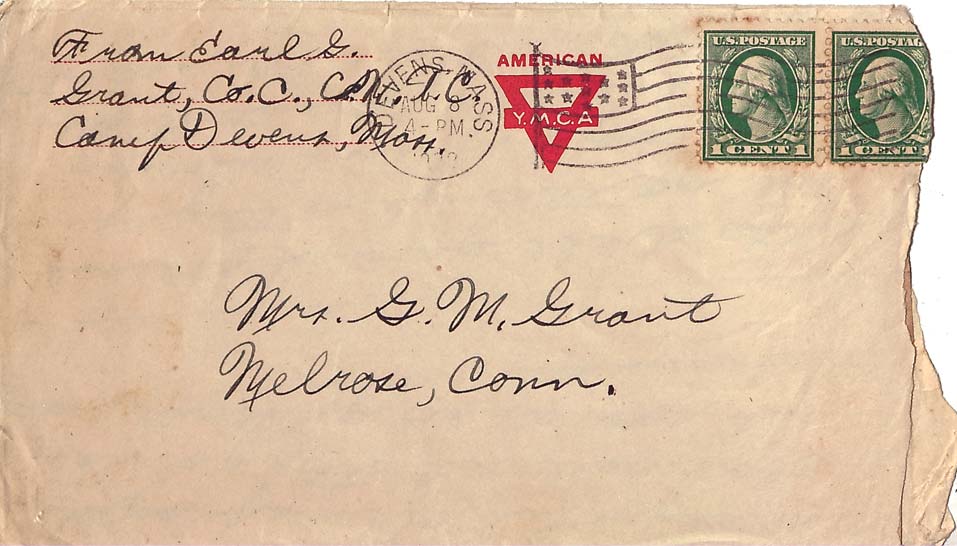 From Earl G.
Grant, Co. C.,
Camp Devens, Mass.
DEVENS, MASS
AUG 8
4-PM
AMERICAN
Y.M.C.A
U.S. POSTAGE
1 CENT 1
U.S. POSTAG
1 CENT
Mrs. G. M. Grant
Melrose, Conn.